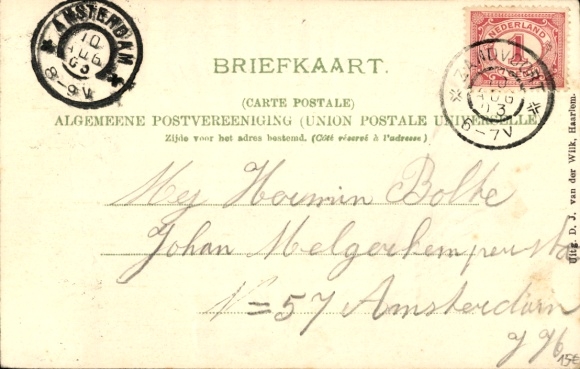 AMSTERDAM
10 AUG 03
8-9V
NEDERLAND
1
ZANDVOORT
10 AUG 03
6-7V
BRIEFKAART.
(CARTE POSTALE)
ALGEMEENE POSTVEREENIGING (UNION POSTALE UNIVERSELLE)
Zijde voor het adres bestemd. (Côté réservé à l'adresse)
Mej Bolke
Johan
57 Amsterdam
Uitg. D. J. van der Wilk, Haarlem.
15€